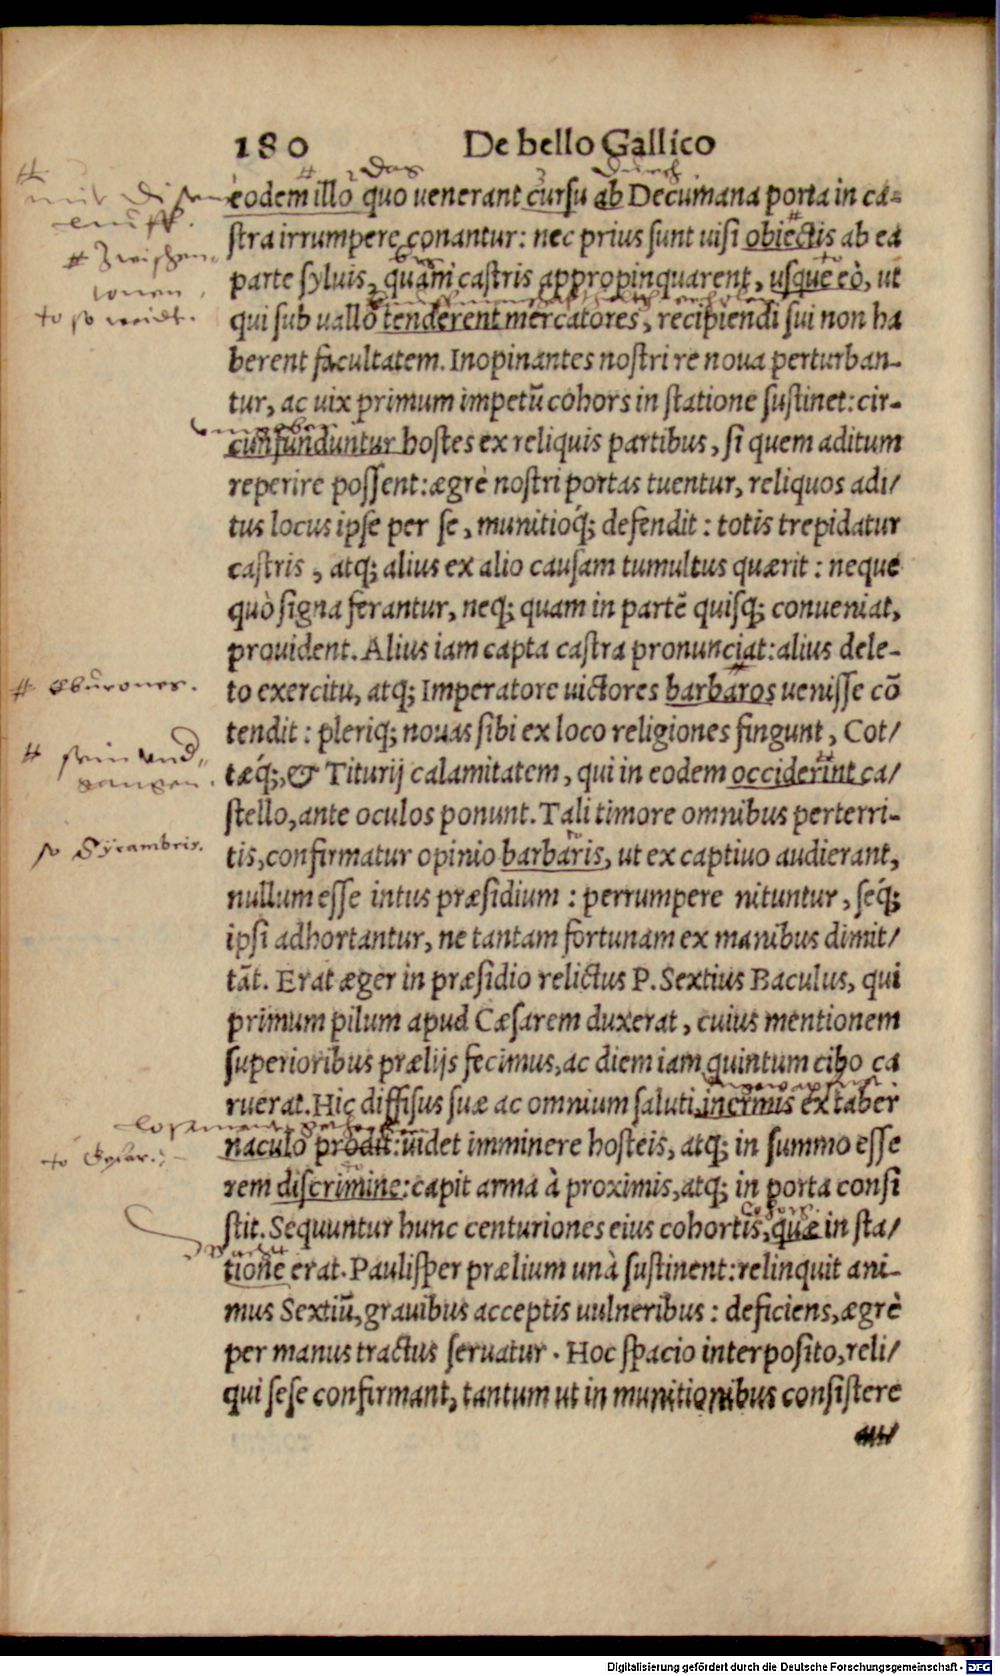 180 De bello Gallico
das
durch
eodem illo quo uenerant cursu ab Decumana porta in ca-
stra irrumpere conantur: nec prius sunt uisi obiectis ab ea
# Zwischen-
parte syluis, quàm castris appropinquarent, usque eò, ut
to so weidt.
qui sub uallo tenderent mercatores, recipiendi sui non ha
berent facultatem. Inopinantes nostri re noua perturban-
tur, ac uix primum impetū cohors in statione sustinet: cir-
cunfunduntur hostes ex reliquis partibus, si quem aditum
reperire possent: ægrè nostri portas tuentur, reliquos adi/
tus locus ipse per se, munitioq́; defendit: totis trepidatur
castris, atq; alius ex alio causam tumultus quærit: neque
quò signa ferantur, neq; quam in partē quisq; conueniat,
prouident. Alius iam capta castra pronunciat: alius dele-
# Eburones.
to exercitu, atq; Imperatore uictores barbaros uenisse cō
tendit: pleriq; nouas sibi ex loco religiones fingunt, Cot/
tæq́;, & Titurij calamitatem, qui in eodem occiderint ca/
stello, ante oculos ponunt. Tali timore omnibus perterri-
so Sycambris.
tis, confirmatur opinio barbaris, ut ex captiuo audierant,
nullum esse intus præsidium: perrumpere nituntur, seq́;
ipsi adhortantur, ne tantam fortunam ex manibus dimit/
tāt. Erat æger in præsidio relictus P. Sextius Baculus, qui
primum pilum apud Cæsarem duxerat, cuius mentionem
superioribus prælijs fecimus, ac diem iam quintum cibo ca
ruerat. Hic diffisus suæ ac omnium saluti, inermis ex taber
naculo prodit: uidet imminere hosteis, atq; in summo esse
rem discrimine: capit arma à proximis, atq; in porta consi
cohors.
stit. Sequuntur hunc centuriones eius cohortis, quæ in sta/
tione erat. Paulisper prælium unà sustinent: relinquit ani-
mus Sextiū, grauibus acceptis uulneribus: deficiens, ægrè
per manus tractus seruatur. Hoc spacio interposito, reli/
qui sese confirmant, tantum ut in munitionibus consistere
Digitalisierung gefördert durch die Deutsche Forschungsgemeinschaft - DFG